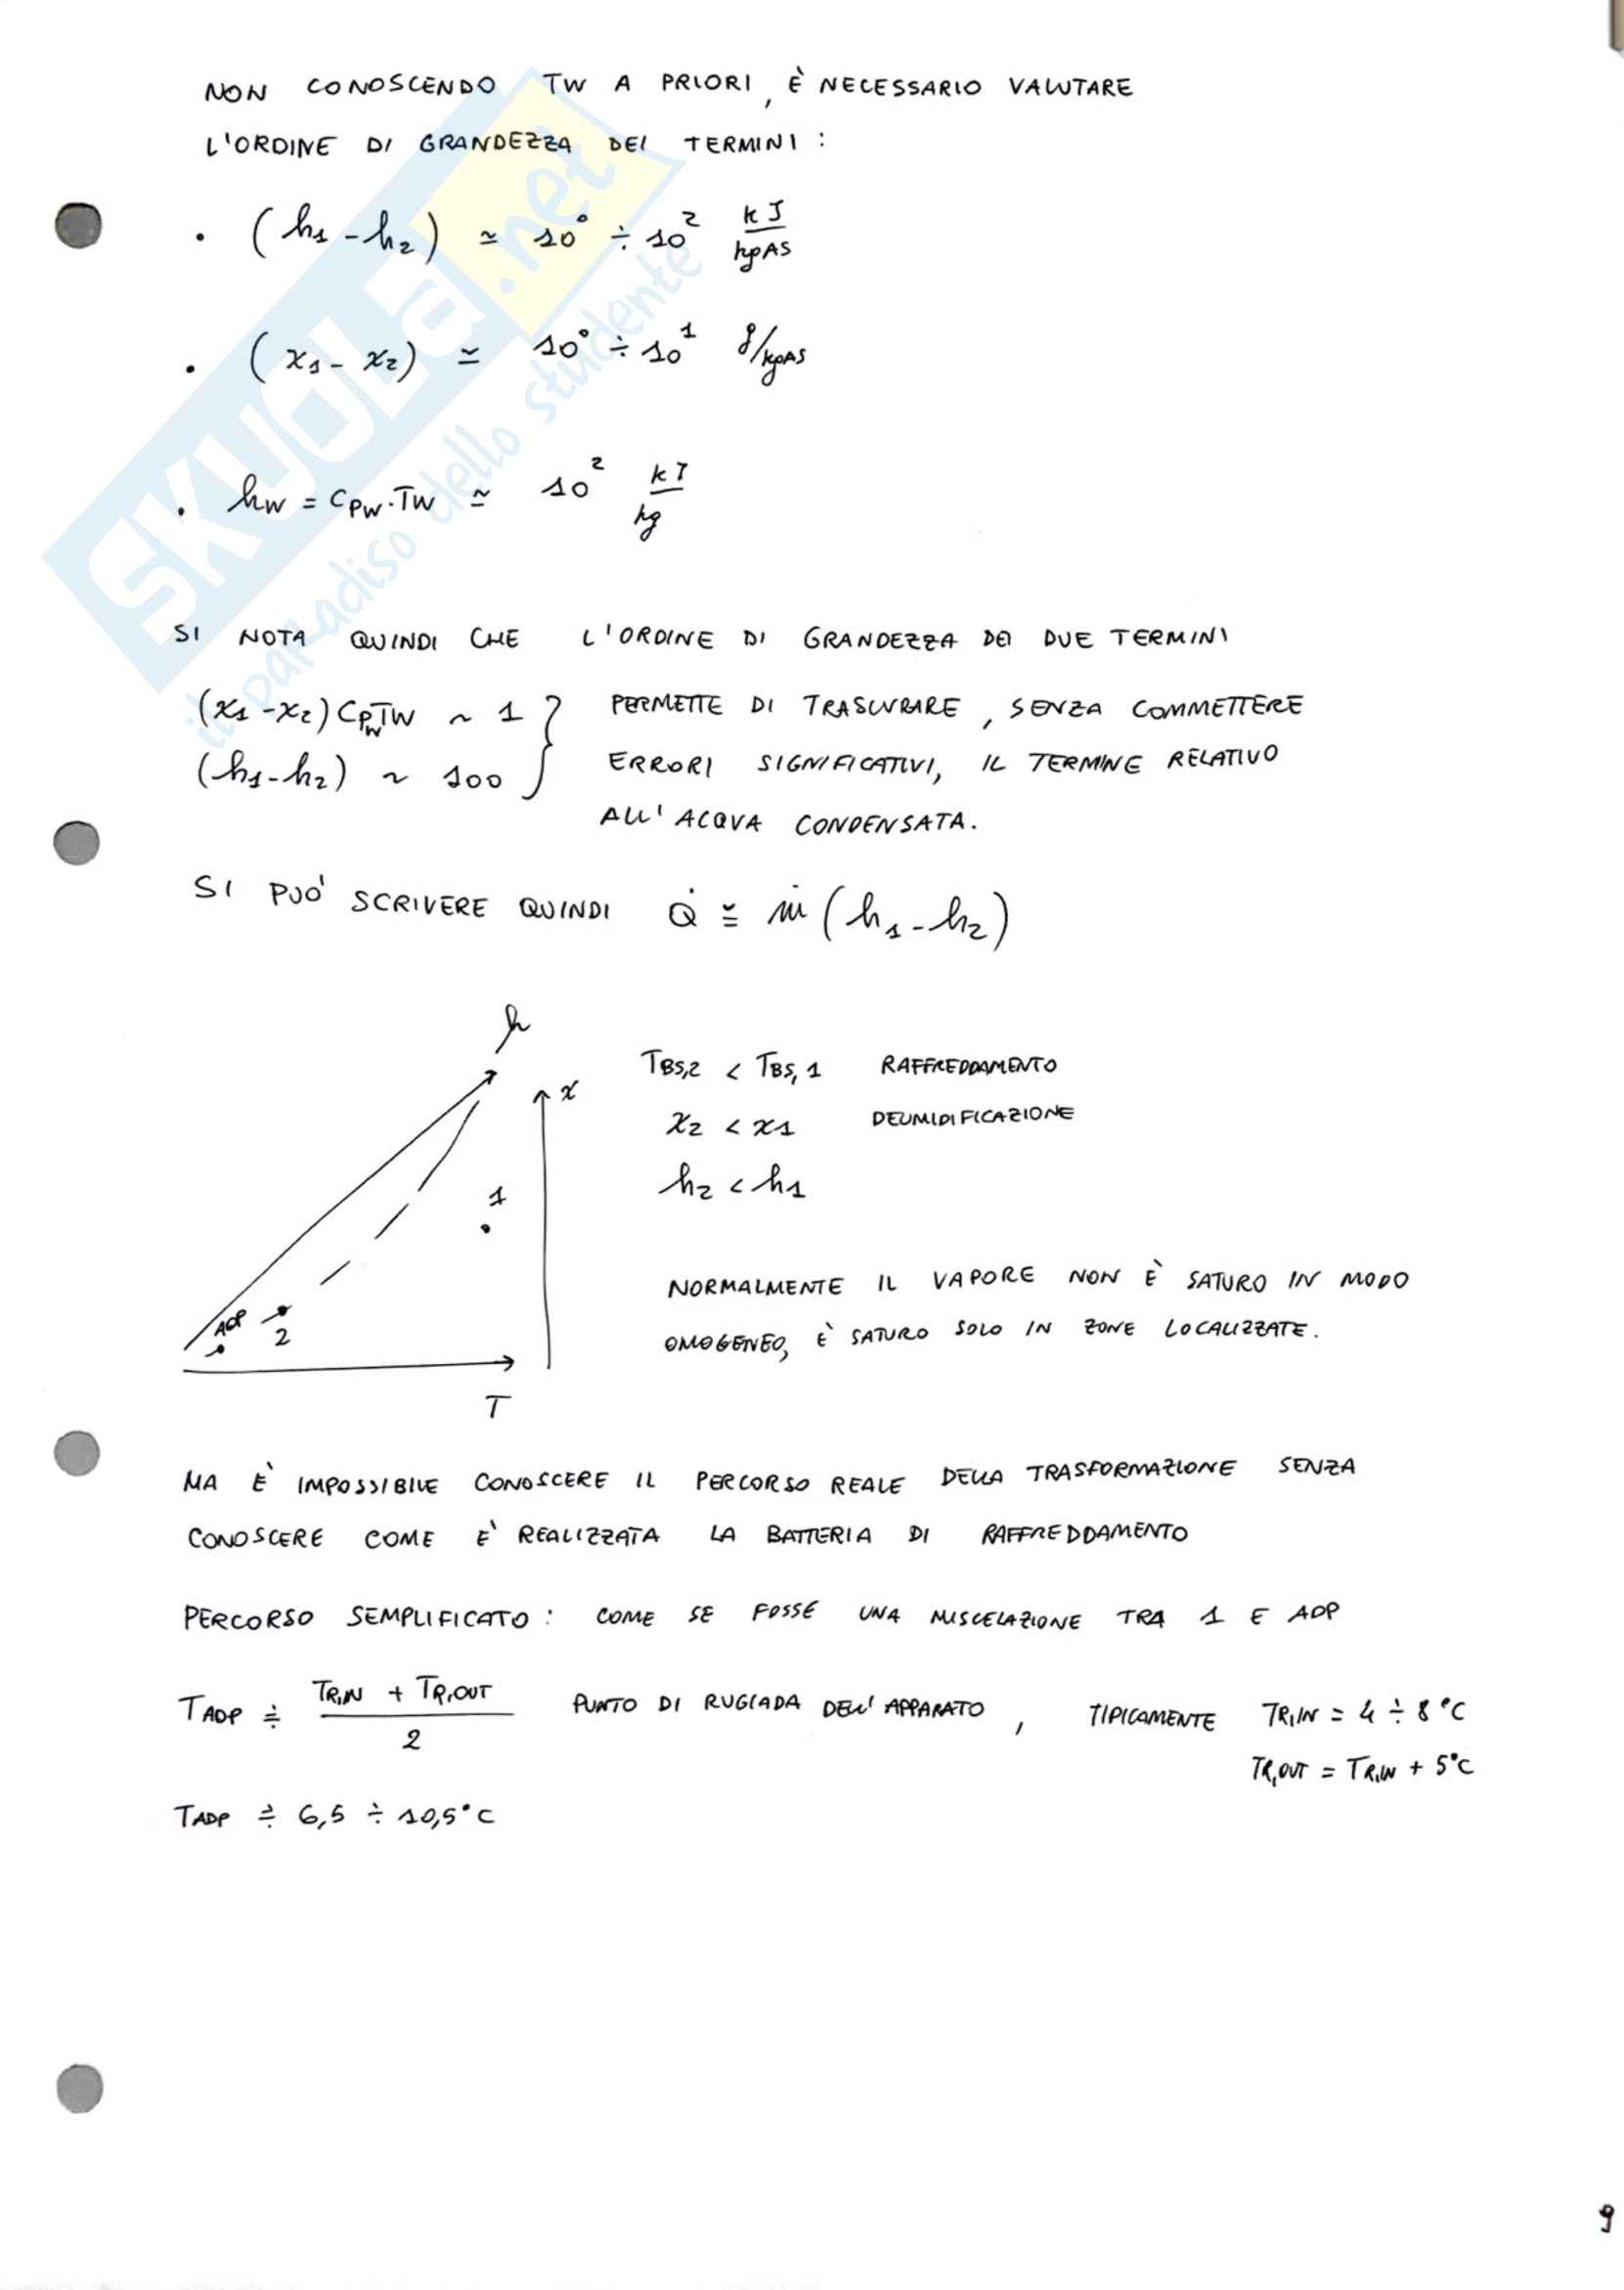 NON CONOSCENDO TW A PRIORI, È NECESSARIO VALUTARE
L'ORDINE DI GRANDEZZA DEI TERMINI :
• (h1 - h2) ≃ 10⁰ ÷ 10² kJ/kgAS
• (x1 - x2) ≃ 10⁰ ÷ 10¹ g/kgAS
• hw = CPW · TW ≃ 10² kJ/kg
SI NOTA QUINDI CHE L'ORDINE DI GRANDEZZA DEI DUE TERMINI
(x1 - x2) CPW TW ~ 1 } PERMETTE DI TRASCURARE, SENZA COMMETTERE
(h1 - h2) ~ 100 ERRORI SIGNIFICATIVI, IL TERMINE RELATIVO
ALL'ACQUA CONDENSATA.
SI PUÒ SCRIVERE QUINDI Q̇ ≅ ṁ (h1 - h2)
h
x
1
ADP
2
T
TBS,2 < TBS,1 RAFFREDDAMENTO
x2 < x1 DEUMIDIFICAZIONE
h2 < h1
NORMALMENTE IL VAPORE NON È SATURO IN MODO
OMOGENEO, È SATURO SOLO IN ZONE LOCALIZZATE.
MA È IMPOSSIBILE CONOSCERE IL PERCORSO REALE DELLA TRASFORMAZIONE SENZA
CONOSCERE COME È REALIZZATA LA BATTERIA DI RAFFREDDAMENTO
PERCORSO SEMPLIFICATO : COME SE FOSSE UNA MISCELAZIONE TRA 1 E ADP
TADP ≑ (TR,IN + TR,OUT) / 2 PUNTO DI RUGIADA DELL'APPARATO, TIPICAMENTE TR,IN = 4 ÷ 8 °C
TR,OUT = TR,IN + 5°C
TADP ≑ 6,5 ÷ 10,5°C
9
SKUOLA.net
il paradiso dello studente